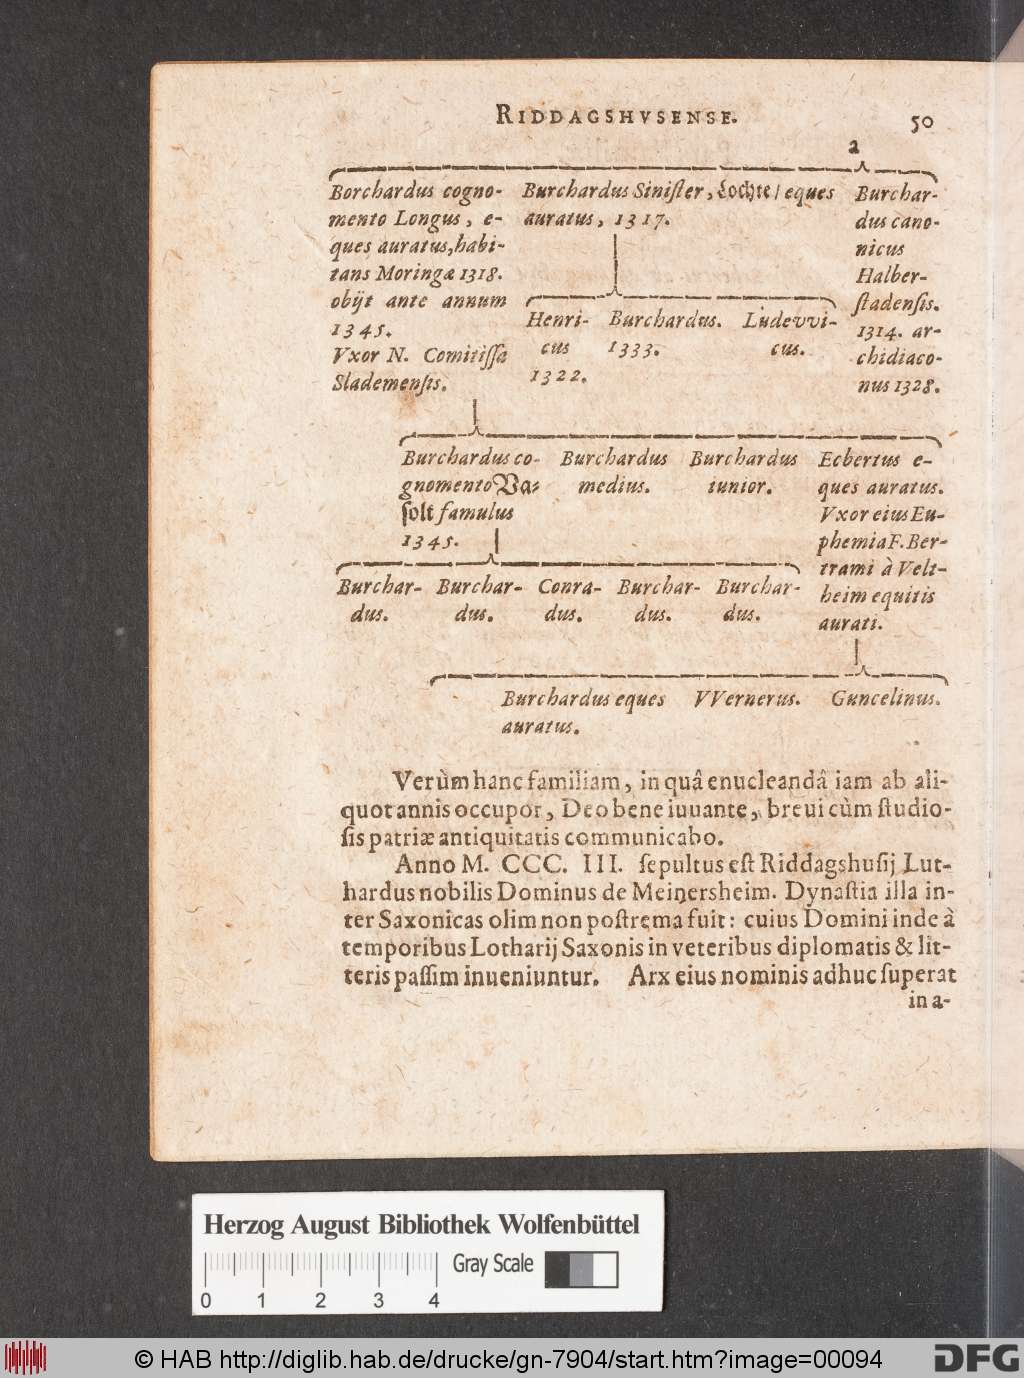 RIDDAGSHVSENSE.
50
a
Borchardus cogno-
mento Longus, e-
ques auratus, habi-
tans Moringæ 1318.
obijt ante annum
1345.
Vxor N. Comitissa
Slademensis.
Burchardus Sinister, Lochte/ eques
auratus, 1317.
Burchar-
dus cano-
nicus
Halber-
stadensis.
1314. ar-
chidiaco-
nus 1328.
Henri-
cus
1322.
Burchardus.
1333.
Ludevvi-
cus.
Burchardus co-
gnomento Va-
solt famulus
1345.
Burchardus
medius.
Burchardus
iunior.
Ecbertus e-
ques auratus.
Vxor eius Eu-
phemia F. Ber-
trami à Velt-
heim equitis
aurati.
Burchar-
dus.
Burchar-
dus.
Conra-
dus.
Burchar-
dus.
Burchar-
dus.
Burchardus eques
auratus.
VVernerus.
Guncelinus.
Verùm hanc familiam, in quâ enucleandâ iam ab ali-
quot annis occupor, Deo bene iuuante, breui cùm studio-
sis patriæ antiquitatis communicabo.
Anno M. CCC. III. sepultus est Riddagshusij Lut-
hardus nobilis Dominus de Meinersheim. Dynastia illa in-
ter Saxonicas olim non postrema fuit: cuius Domini inde à
temporibus Lotharij Saxonis in veteribus diplomatis & lit-
teris passim inueniuntur. Arx eius nominis adhuc superat
in a-
Herzog August Bibliothek Wolfenbüttel
Gray Scale
0 1 2 3 4
© HAB http://diglib.hab.de/drucke/gn-7904/start.htm?image=00094
DFG
DFG